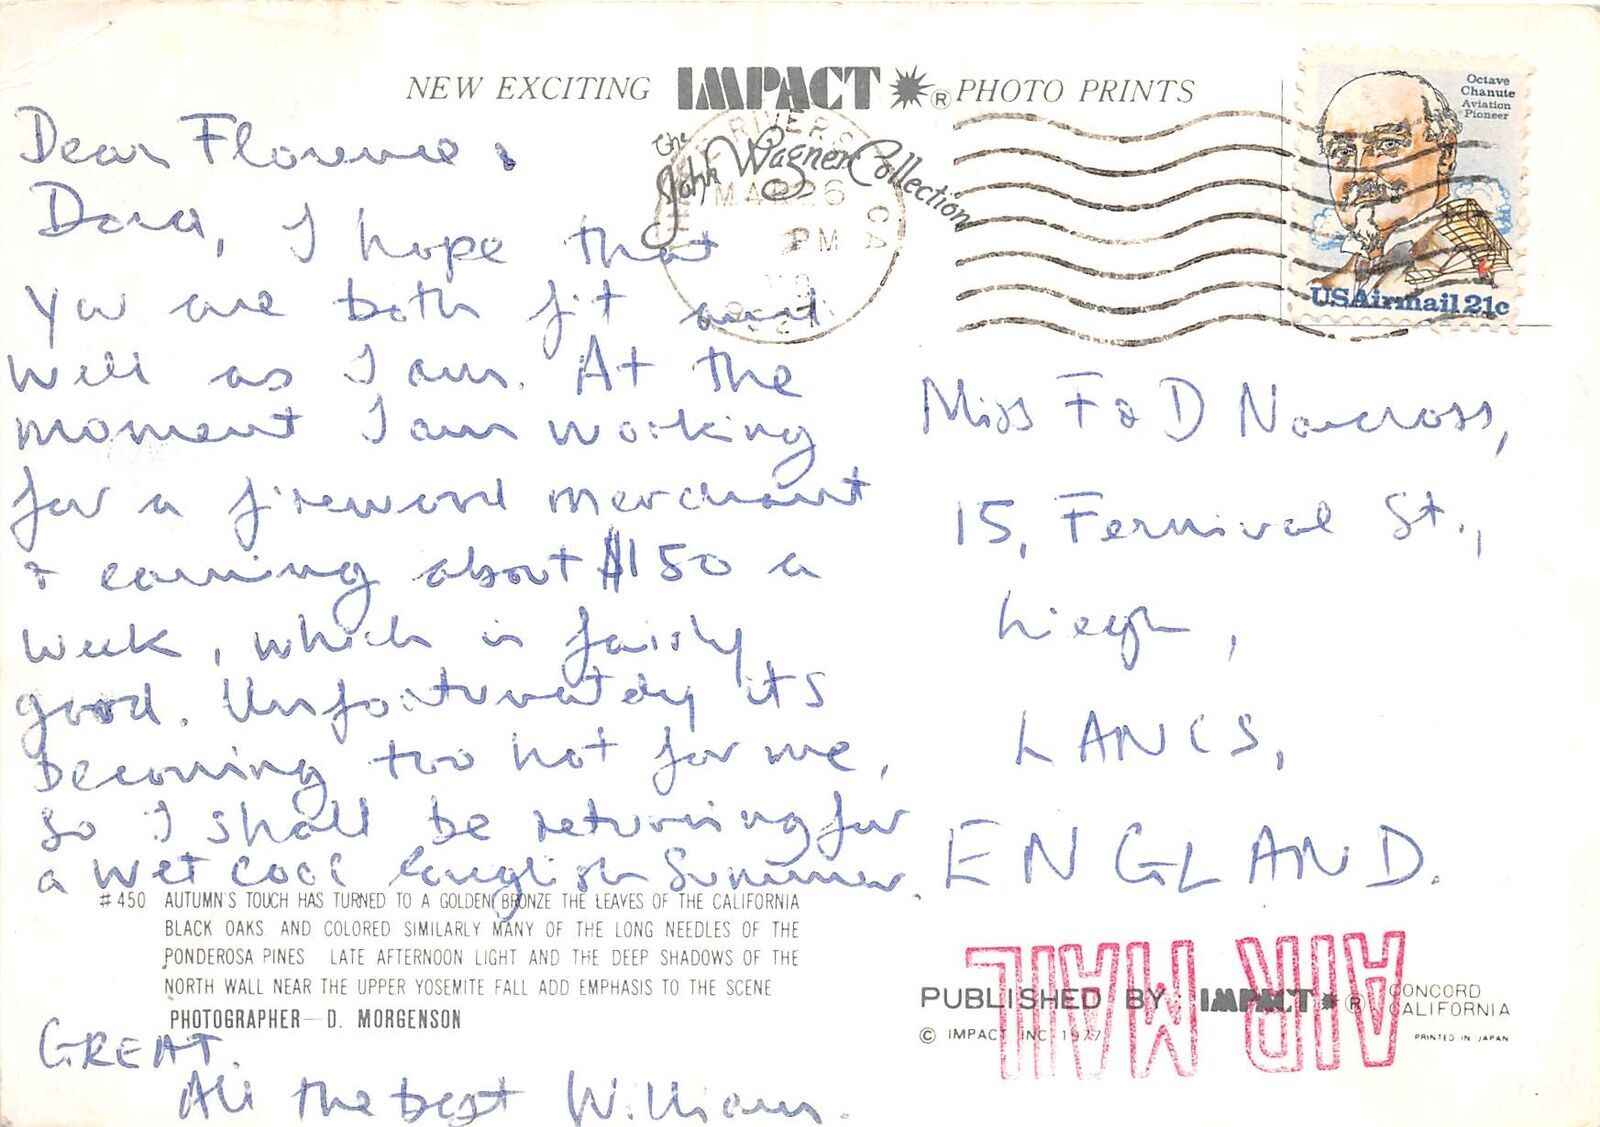 NEW EXCITING IMPACT ® PHOTO PRINTS
The John Wagner Collection
RIVERS
CA
MAR 26
PM
Octave
Chanute
Aviation
Pioneer
USAirmail 21c
Dear Florence &
Dora, I hope that
you are both fit and
well as I am. At the
moment I am working
for a firewood merchant
& earning about $150 a
week, which is fairly
good. Unfortunately its
becoming too hot for me,
so I shall be returning for
a wet cool English Summer.
GREAT.
All the best William.
Miss F & D Norcross,
15, Fernival St.,
Liegh,
LANCS,
ENGLAND.
#450 AUTUMN'S TOUCH HAS TURNED TO A GOLDEN BRONZE THE LEAVES OF THE CALIFORNIA
BLACK OAKS AND COLORED SIMILARLY MANY OF THE LONG NEEDLES OF THE
PONDEROSA PINES LATE AFTERNOON LIGHT AND THE DEEP SHADOWS OF THE
NORTH WALL NEAR THE UPPER YOSEMITE FALL ADD EMPHASIS TO THE SCENE
PHOTOGRAPHER—D. MORGENSON
AIR MAIL
PUBLISHED BY: IMPACT ® CONCORD
CALIFORNIA
© IMPACT INC 1977
PRINTED IN JAPAN